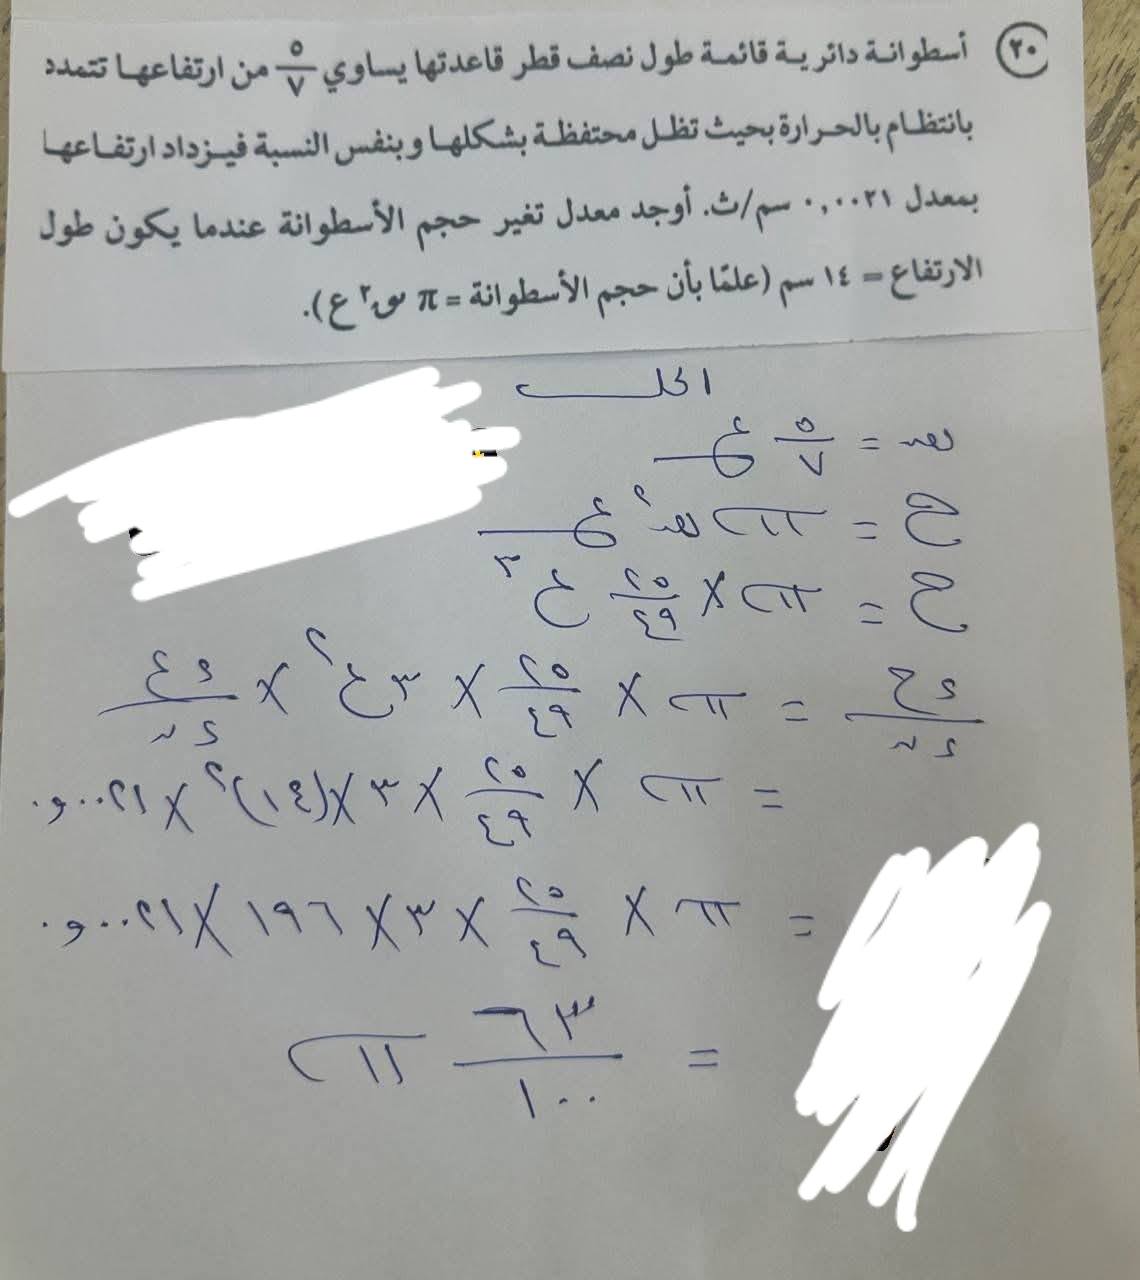 ٢٠ أسطوانة دائرية قائمة طول نصف قطر قاعدتها يساوي ٥/٧ من ارتفاعها تتمدد
بانتظام بالحرارة بحيث تظل محتفظة بشكلها وبنفس النسبة فيزداد ارتفاعها
بمعدل ٠,٠٠٢١ سم/ث. أوجد معدل تغير حجم الأسطوانة عندما يكون طول
الارتفاع = ١٤ سم (علمًا بأن حجم الأسطوانة = π نق٢ ع).
الحل
نق = ٥/٧ ع
ح = π نق٢ ع
ح = π × ٢٥/٤٩ ع٣
ءح/ءن = π × ٢٥/٤٩ × ٣ع٢ × ءع/ءن
= π × ٢٥/٤٩ × ٣ × (١٤)٢ × ٠,٠٠٢١
= π × ٢٥/٤٩ × ٣ × ١٩٦ × ٠,٠٠٢١
= ٦٣/١٠٠ π